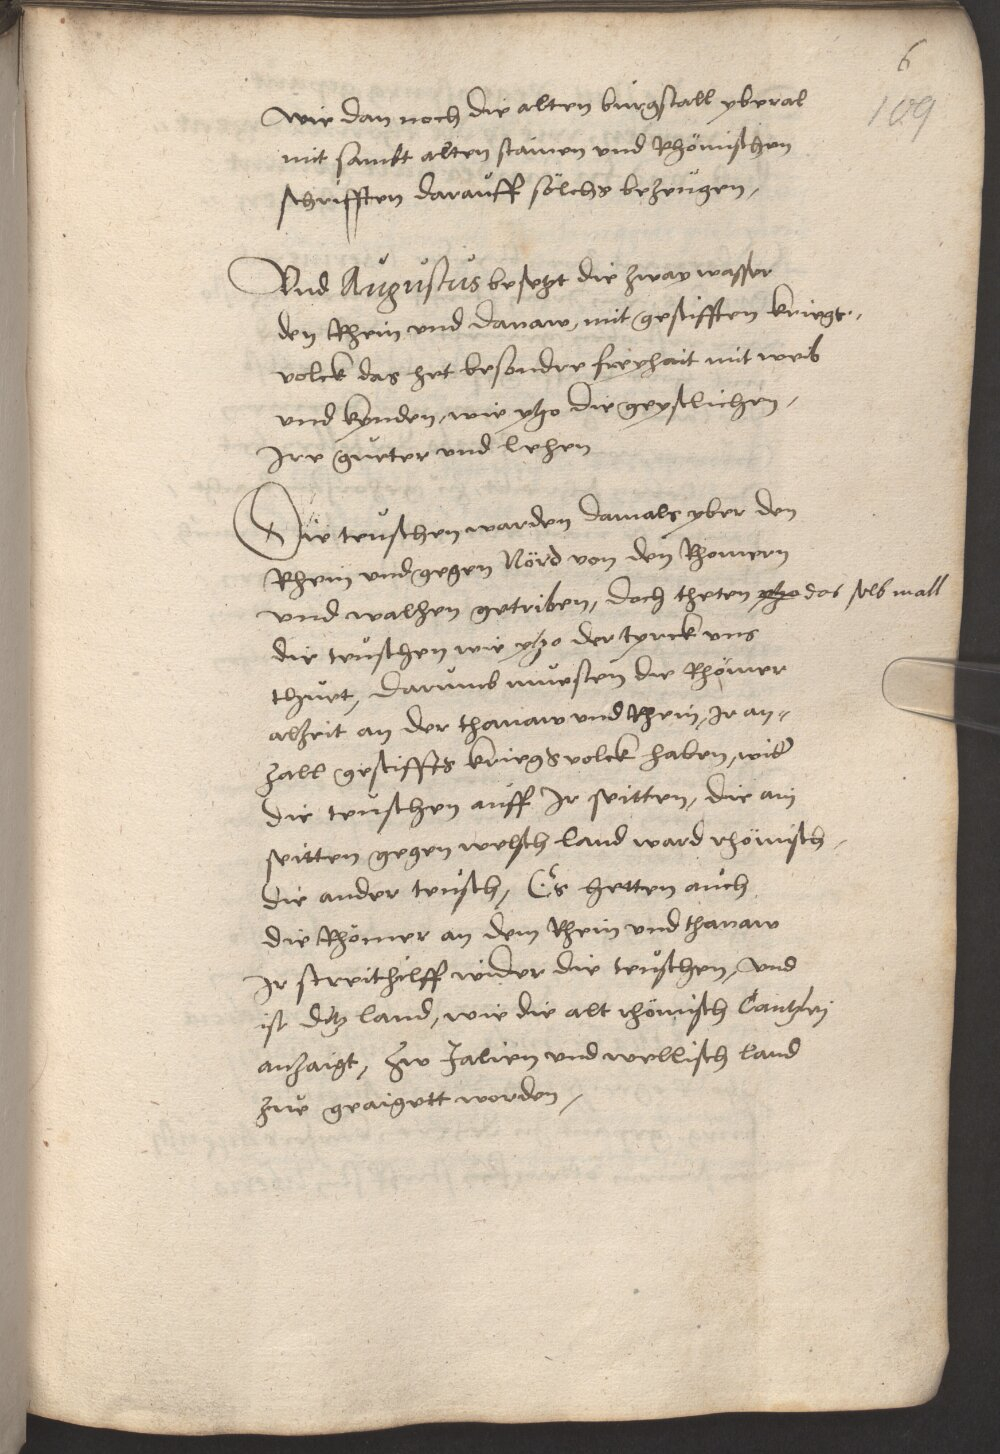 6
109
wie dan noch die alten burgstall yberal
mit sambt alten stainen und Rhömischen
schrifften darauff sölchs bezeugen,
Und Augustus besetzt die zway wasser
den Rhein und Danaw, mit gestifften kriegs-
volck das het besondre freyhait mit weib
und kynden, wie ytzo die geystlichen,
Ire gueter und lehen
Die teuschen warden damals yber den
Rhein und gegen Nörd von den Rhomern
und walhen getriben, doch theten ytzo das selb mall
die teuschen wie ytzo der tyrck uns
thuet, darumb muesten die Rhömer
alzeit an der thanaw und Rhein, Ir an-
zall gestiffts kriegsvolck haben, wider
die teuschen auff Ir seitten, die ain
seitten gegen welsch land ward rhömisch,
die ander teusch, Es hetten auch
die Rhömer an dem Rhein und thanaw
Ir streithilff wider die teuschen, und
ist ditz land, wie die alt rhömisch Cantzley
anzaigt, zw Jtalien und wellisch land
zue geaigett worden,